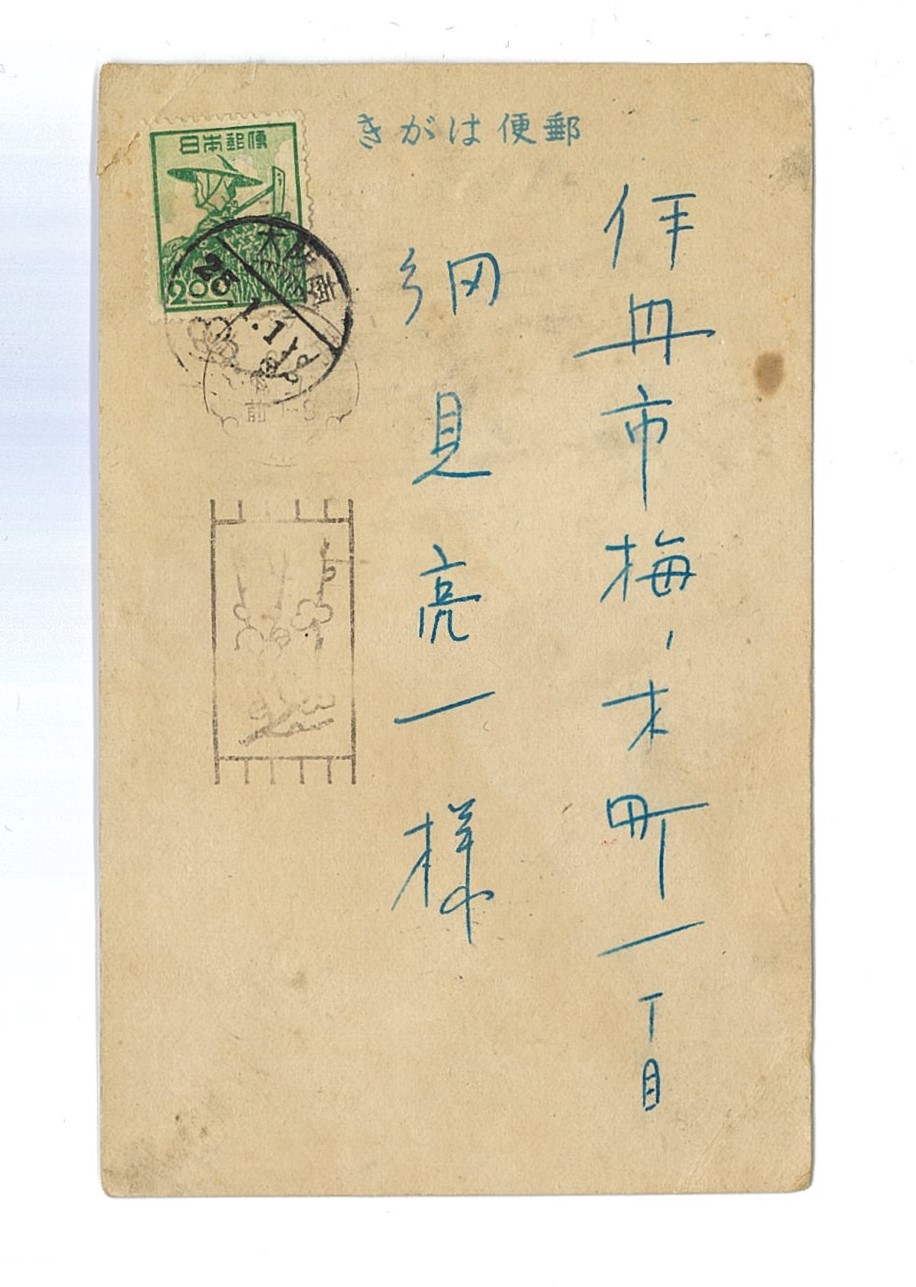 郵便はがき
日本郵便
200
大阪南
25.1.1
前 -9
伊丹市梅ノ木町一丁目
綱見亮一様